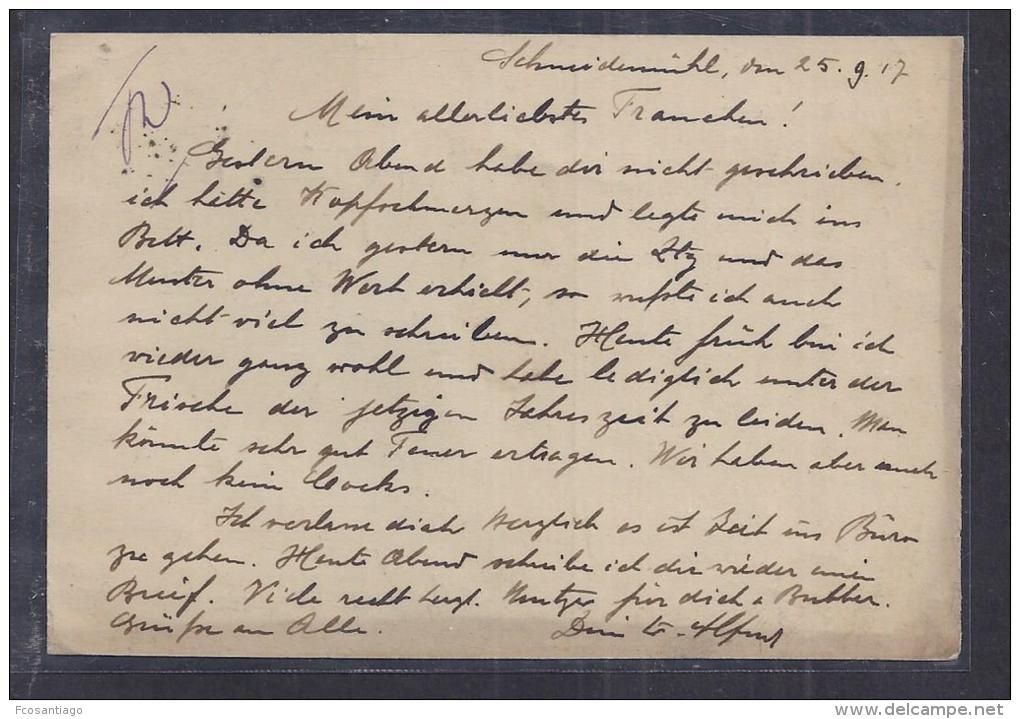 Schneidemühl, den 25.9.17
Mein allerliebstes Frauchen!
Gestern Abend habe dir nicht geschrieben.
ich hatte Kopfschmerzen und legte mich ins
Bett. Da ich gestern nur die Ztg und das
Muster ohne Wert erhielt, so wußte ich auch
nicht viel zu schreiben. Heute früh bin ich
wieder ganz wohl und habe lediglich unter der
Frische der jetzigen Jahreszeit zu leiden. Man
könnte sehr gut Feuer ertragen. Wir haben aber auch
noch kein Cocks.
Ich verlasse dich herzlich es ist Zeit ins Büro
zu gehen. Heute Abend schreibe ich dir wieder ein
Brief. Viele recht herzl. für dich &
Grüße an Alle. Dein tr. Alfred
Fcosantiago
www.delcampe.net